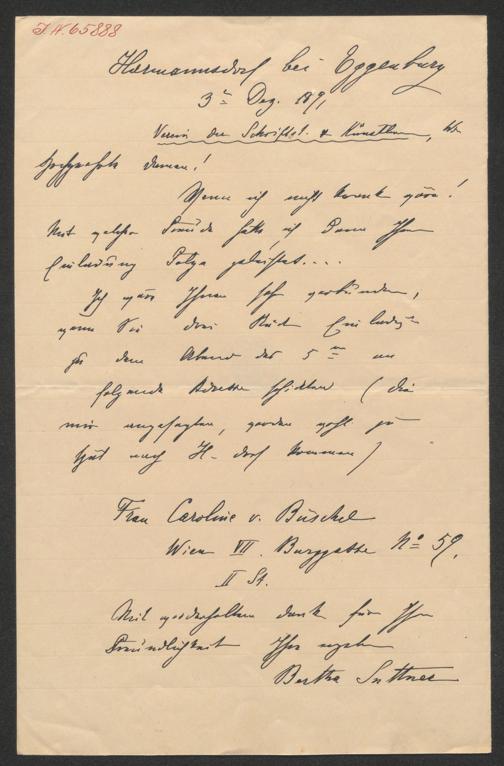 I.N. 65888
Harmannsdorf bei Eggenburg
3t Dez. 189,
Verein der Schriftst. & Künstlerinnen, Wien
Hochgeehrte Damen!
Wenn ich nicht krank wäre!
Mit welcher Freude hätte ich dann Ihrer
Einladung Folge geleistet....
Ich wäre Ihnen sehr verbunden,
wenn Sie drei Stück Einladgn
zu dem Abend des 5ten an
folgende Adresse schickten (die
mir angesagten, werden wohl zu
spät nach H-dorf kommen)
Frau Caroline v. Büschel
Wien VII. Burggasse No 59,
II St.
Mit wiederholtem Dank für Ihre
Freundlichkeit Ihre ergebene
Bertha Suttner